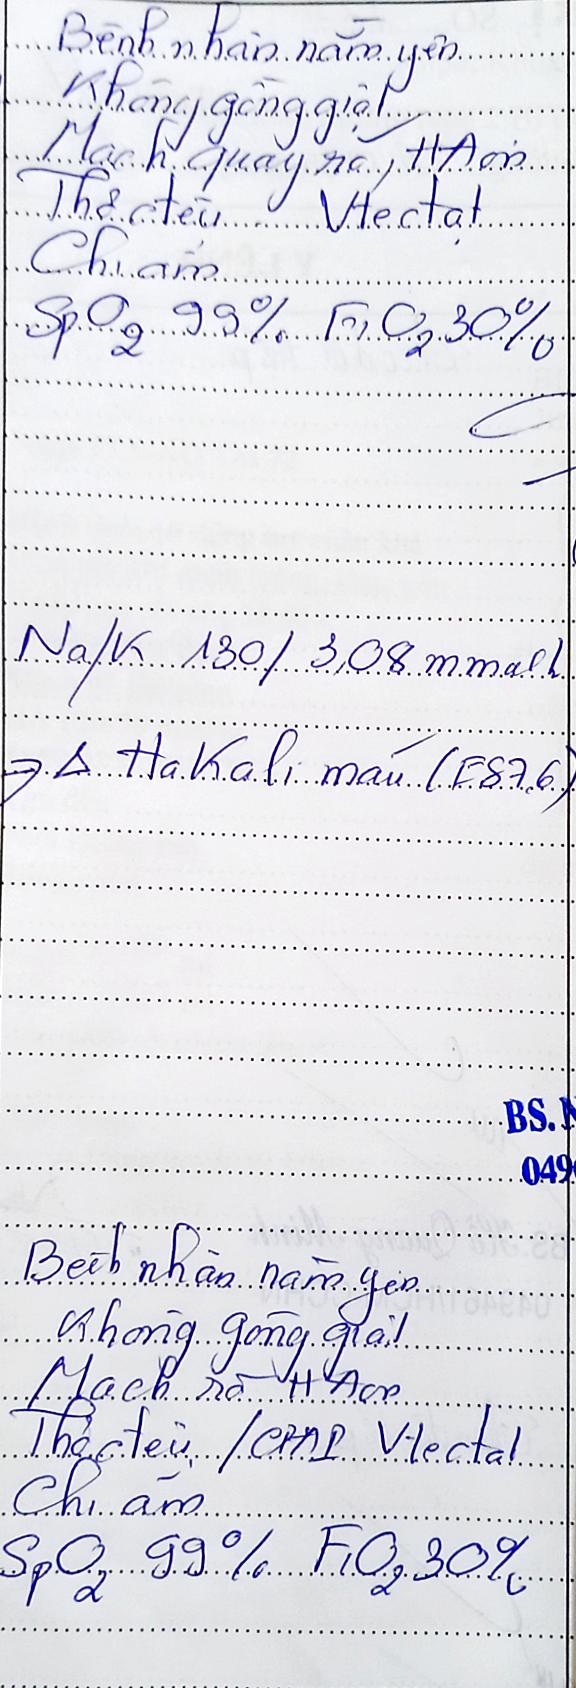 Bệnh nhân nằm yên
Không gồng giật
Mạch quay rõ, HA ổn
Thở c tếu Vt đạt
Chi ấm
SpO2 99% FiO2 30%
Na/K 130/3,08 mmol/l
→ Δ Hạ Kali máu (E87.6)
BS. N
049
Bệnh nhân nằm yên
Không gồng giật
Mạch rõ HA ổn
Thở / Vt đạt
Chi ấm
SpO2 99% FiO2 30%